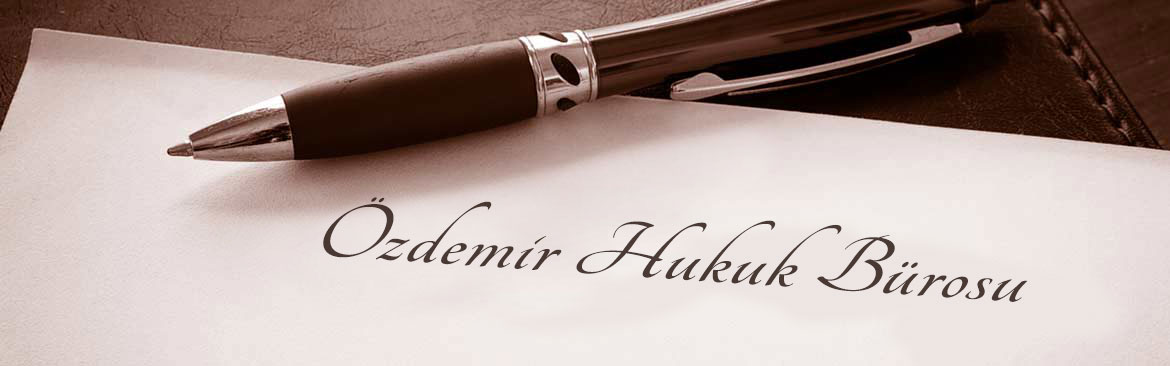 Özdemir Hukuk Bürosu